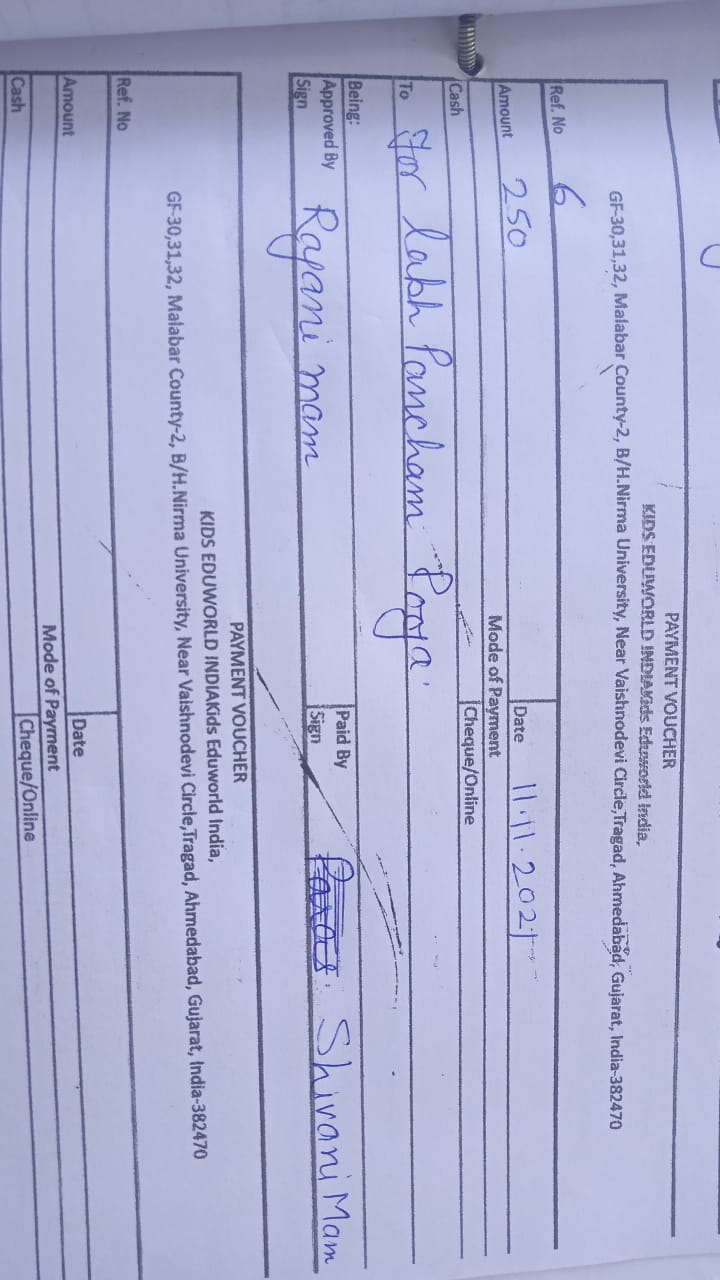 PAYMENT VOUCHER
KIDS EDUWORLD INDIAKids Eduworld India,
GF-30,31,32, Malabar County-2, B/H.Nirma University, Near Vaishnodevi Circle,Tragad, Ahmedabad, Gujarat, India-382470
Ref. No 6
Amount 250 Date 11.11.2021
Mode of Payment
Cash Cheque/Online
To For labh Pancham Pooja.
Being:
Approved By Rajani mam Paid By Shivani Mam
Sign Sign
PAYMENT VOUCHER
KIDS EDUWORLD INDIAKids Eduworld India,
GF-30,31,32, Malabar County-2, B/H.Nirma University, Near Vaishnodevi Circle,Tragad, Ahmedabad, Gujarat, India-382470
Ref. No
Amount Date
Mode of Payment
Cash Cheque/Online